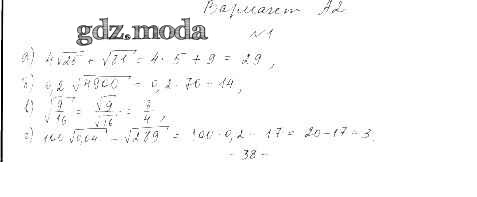 Вариант А2
gdz.moda
№1
а) 4√25 + √81 = 4 · 5 + 9 = 29,
б) 0,2 √4900 = 0,2 · 70 = 14,
в) √(9/16) = √9/√16 = 3/4,
г) 100 √0,04 − √289 = 100 · 0,2 − 17 = 20 − 17 = 3.
- 38 -